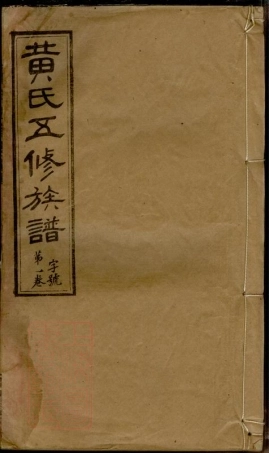 黃氏五修族譜
字號
第一卷